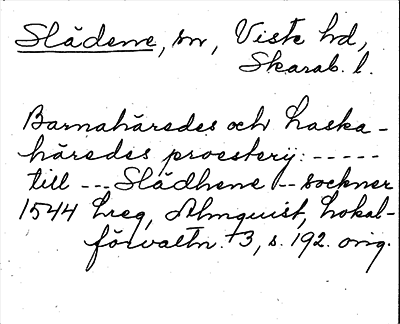 Slädene, sn, Viste hd,
Skarab. l.
Barnahäredes och Laska-
häredes proesterij: -----
till --- Slädhene -- sockner
1544 hreg, Almquist, Lokal-
förvaltn. 3, s. 192. orig.